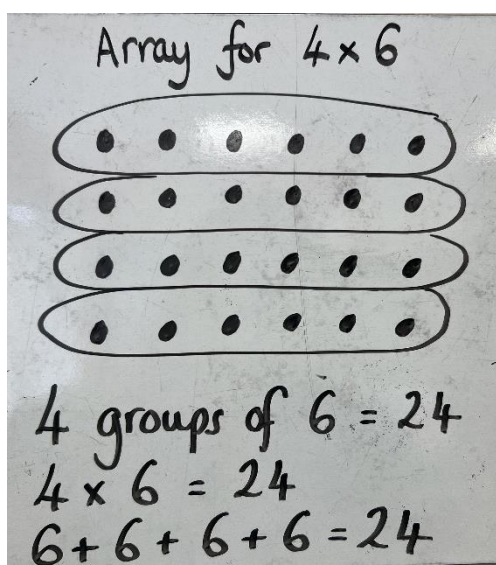 Array for 4 × 6
4 groups of 6 = 24
4 × 6 = 24
6 + 6 + 6 + 6 = 24